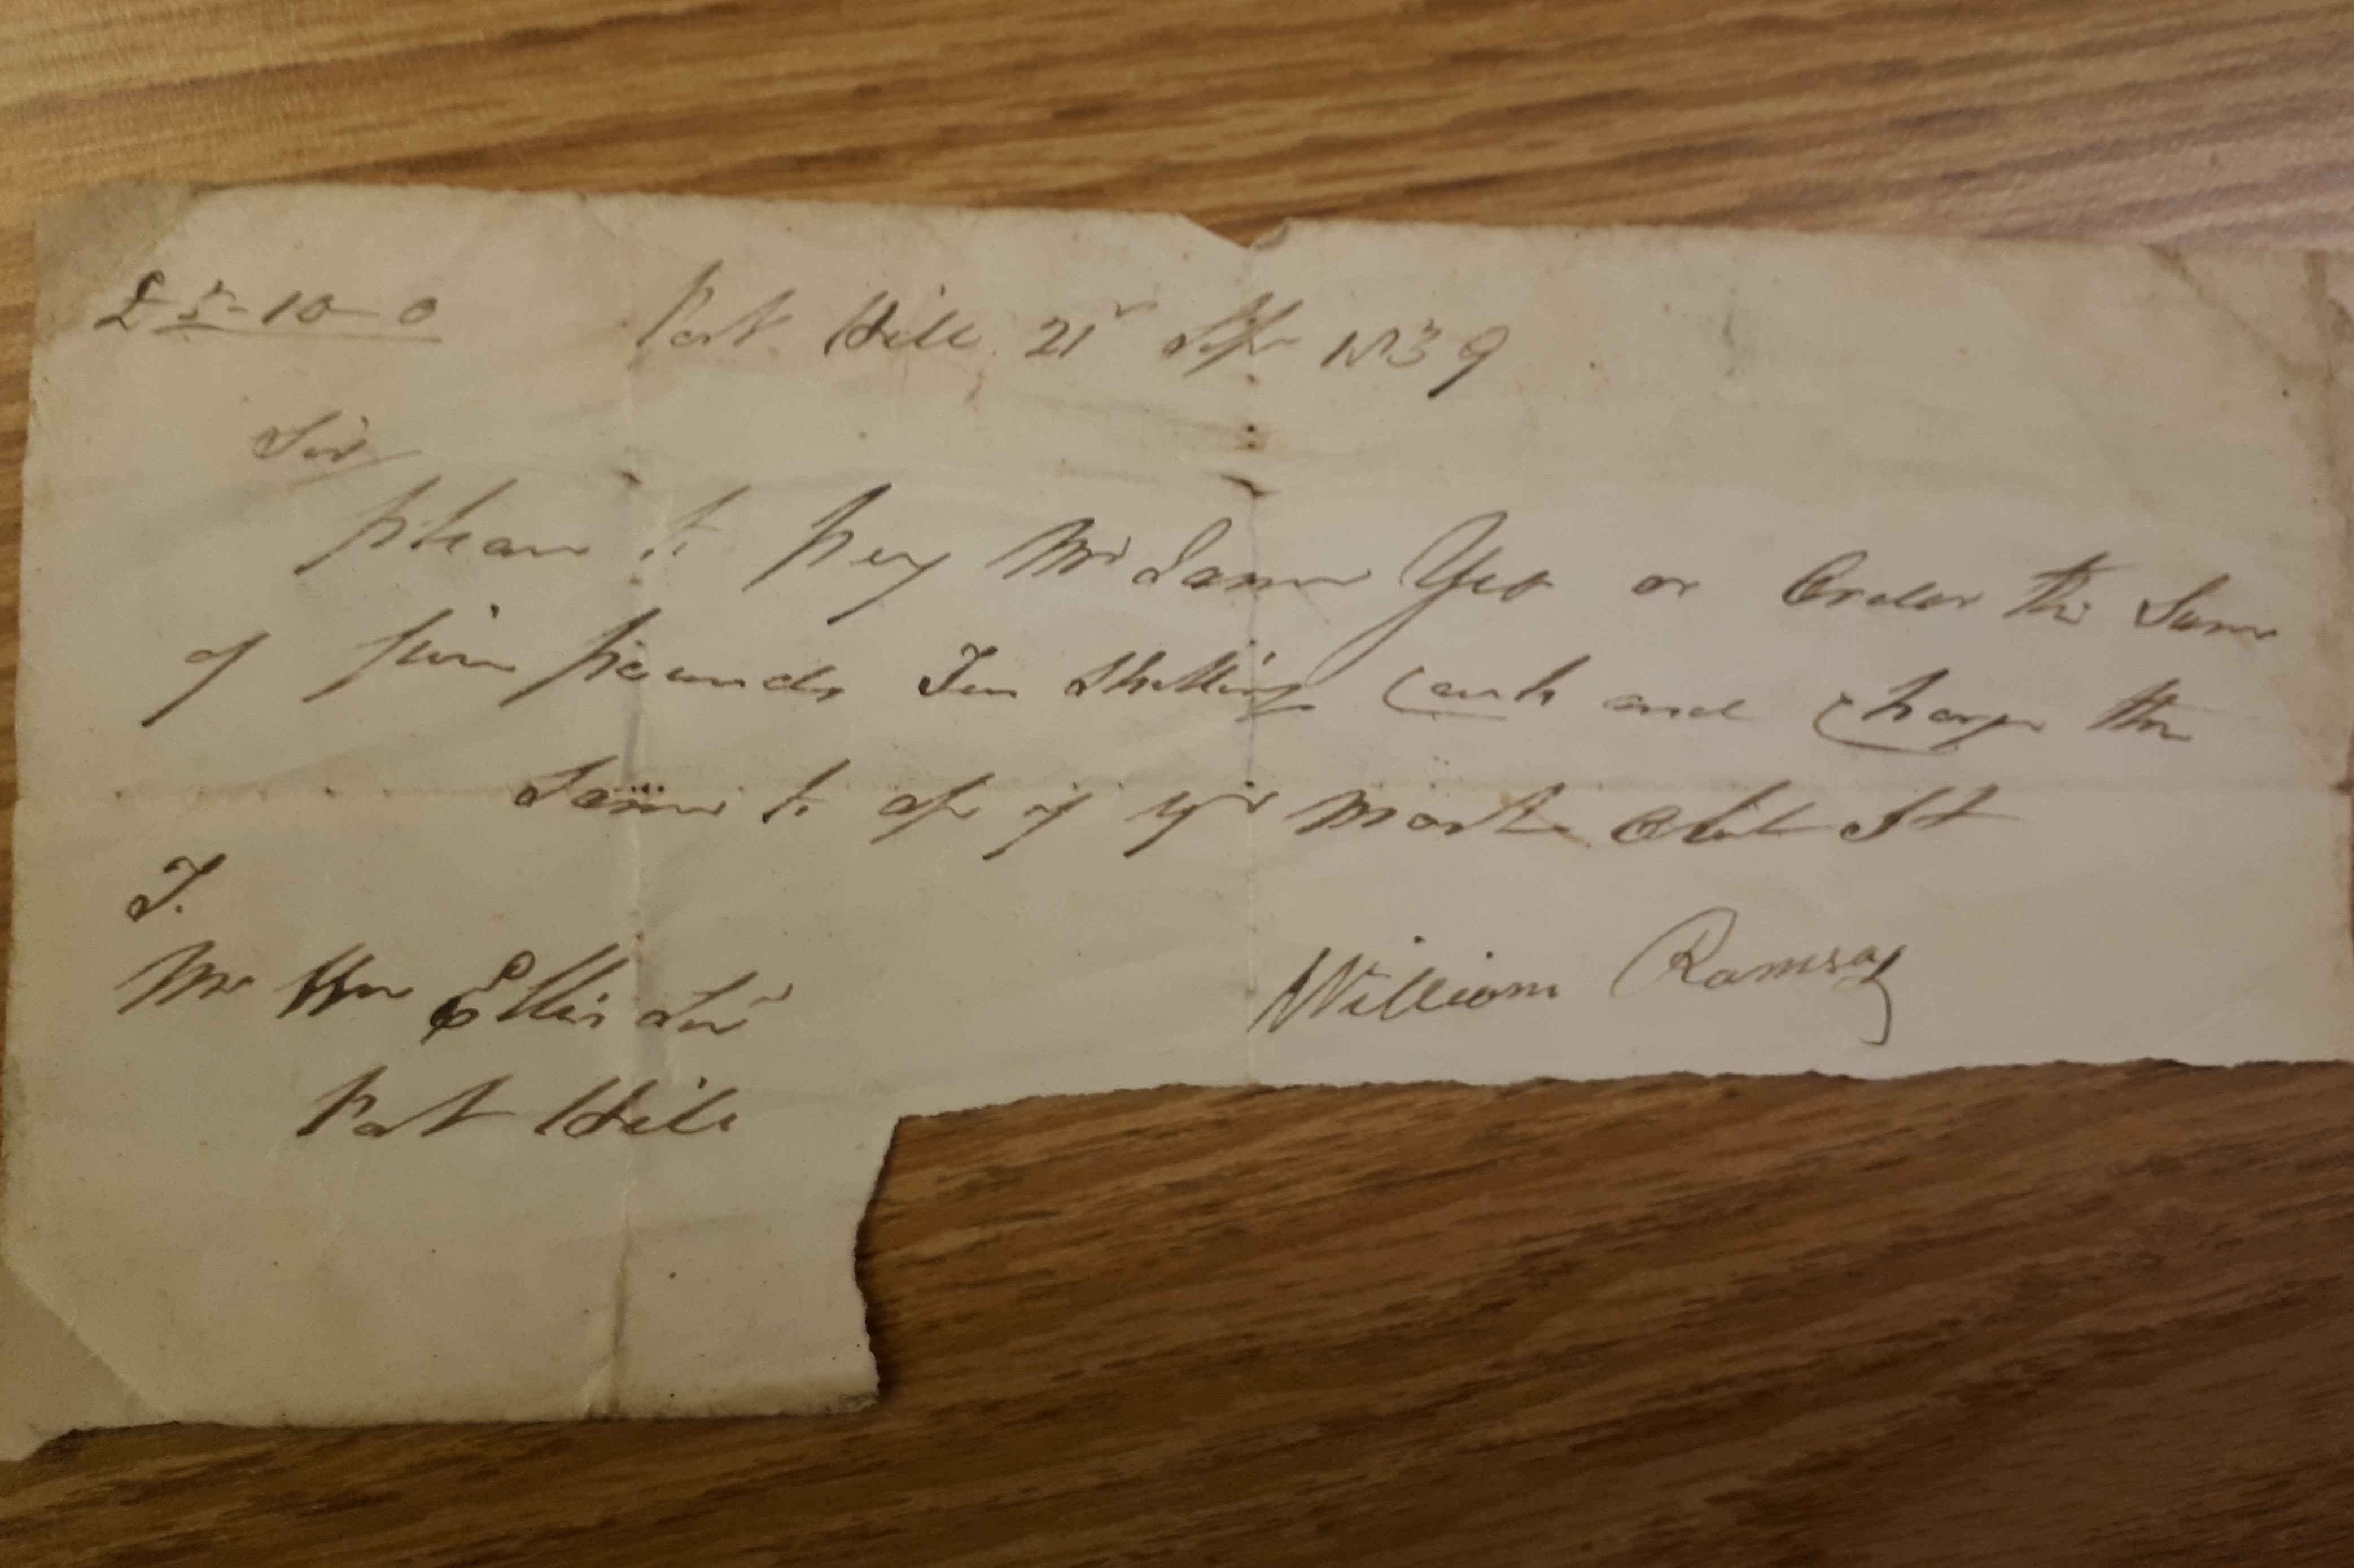 £5-10-0 Port Hill 21st Sepr 1839
Sir
please to pay Mr James Yeo or Order the Sum
of five pounds Ten Shillings Cash and Charge the
Same to ap of yr most Obt St
T.
Mr Wm Ellis Senr William Ramsay
Port Hill